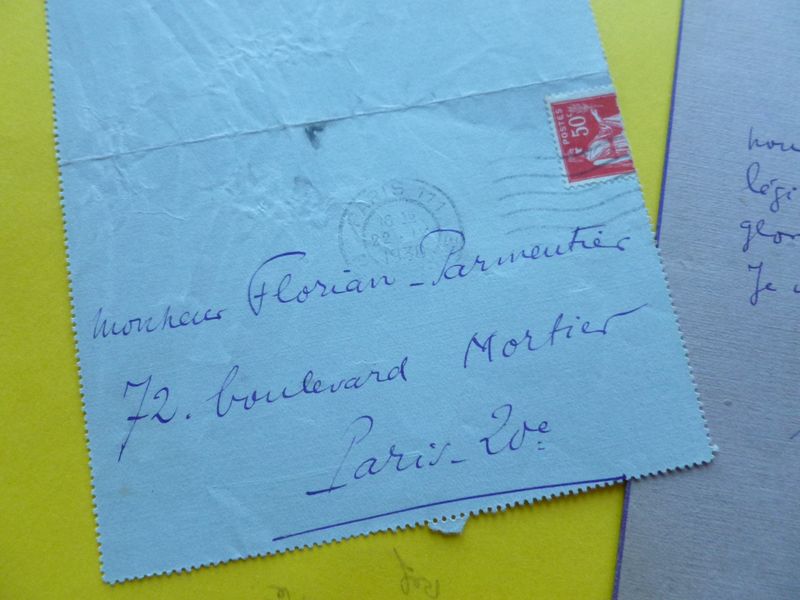 POSTES
50c
PARIS 171
22
Monsieur Florian-Parmentier
72. boulevard Mortier
Paris-20e
légi
Je